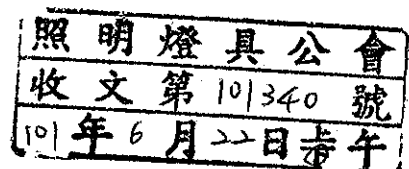 照明燈具公會
收文第101340號
101年6月22日午